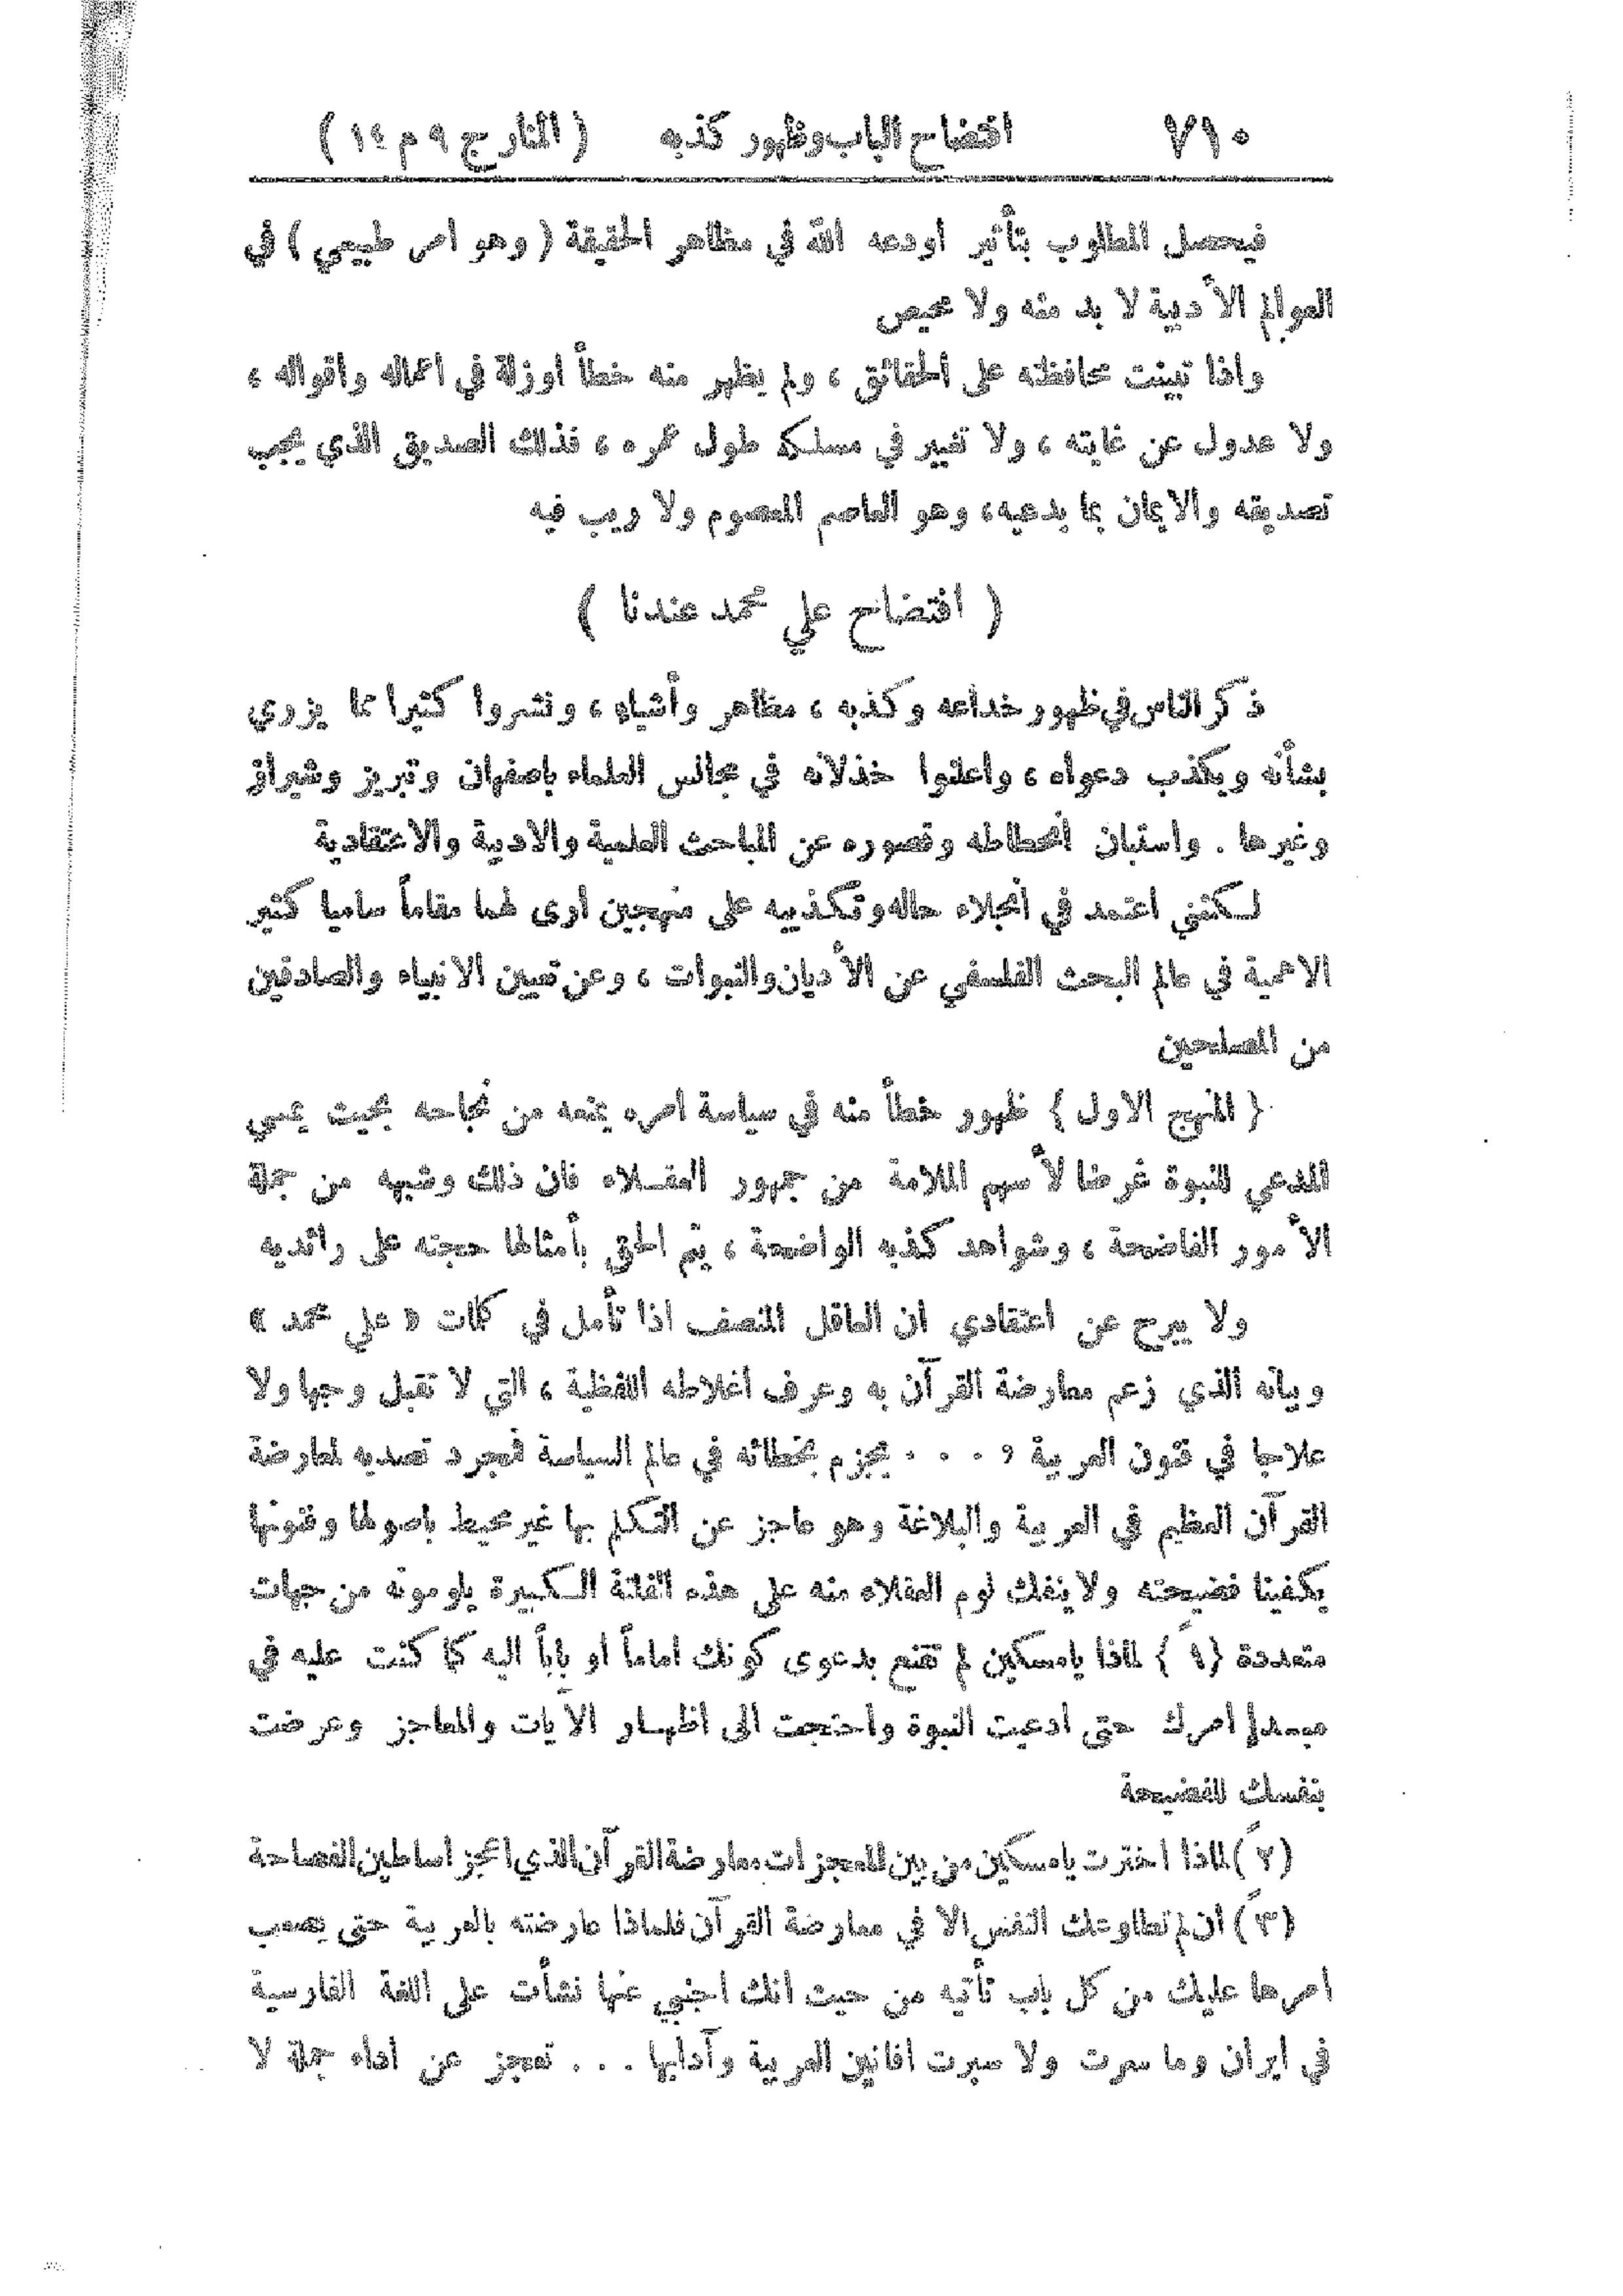 ٧١٠ افتضاح الباب وظهور كذبه ( المنار ج ٩ م ١٤ )
فيحصل المطلوب بتأثير اودعه الله في مظاهر الحقيقة ( وهو امر طبيعي ) في
العوالم الأدبية لا بد منه ولا محيص
واذا تبينت محافظته على الحقائق ، ولم يظهر منه خطأ اوزلة في اعماله واقواله ،
ولا عدول عن غايته ، ولا تغيير في مسلكه طول عمره ، فذلك الصديق الذي يجب
تصديقه والايمان بما يدعيه، وهو العاصم المعصوم ولا ريب فيه
( افتضاح علي محمد عندنا )
ذكر الناس في ظهور خداعه وكذبه ، مظاهر وأشياء ، ونشروا كثيرا مما يزري
بشأنه ويكذب دعواه ، واعلنوا خذلانه في مجالس العلماء باصفهان وتبريز وشيراز
وغيرها . واستبان انحطاطه وقصوره عن المباحث العلمية والادبية والاعتقادية
لكنني اعتمد في انجلاء حاله وتكذيبه على منهجين ارى لهما مقاماً ساميا كثير
الاهمية في عالم البحث الفلسفي عن الأديان والنبوات ، وعن تعيين الانبياء والصادقين
من المصلحين
{ المنهج الاول } ظهور خطأ منه في سياسة امره يمنعه من نجاحه بحيث يمسي
المدعي للنبوة غرضا لأسهم الملامة من جمهور العقلاء فان ذلك وشبهه من جملة
الأمور الفاضحة ، وشواهد كذبه الواضحة ، يتم الحق بأمثالها حجته على رائديه
ولا يبرح عن اعتقادي ان العاقل المنصف اذا تأمل في كلمات « علي محمد »
وبيانه الذي زعم معارضة القرآن به وعرف اغلاطه اللفظية ، التي لا تقبل وجها ولا
علاجا في فنون العربية ، . . . يجزم بخطائه في عالم السياسة فمجرد تصديه لمعارضة
القرآن العظيم في العربية والبلاغة وهو عاجز عن التكلم بها غير محيط باصولها وفنونها
يكفينا فضيحته ولا ينفك لوم العقلاء منه على هذه الفلتة الكبيرة يلومونه من جهات
متعددة {١ } لماذا يامسكين لم تقنع بدعوى كونك اماماً او باباً اليه كما كنت عليه في
مبدإ امرك حتى ادعيت النبوة واحتجت الى اظهار الآيات والمعاجز وعرضت
بنفسك للفضيحة
(٢ ) لماذا اخترت يامسكين من بين المعجزات معارضة القرآن الذي اعجز اساطين الفصاحة
(٣ ) ان لم تطاوعك النفس الا في معارضة القرآن فلماذا عارضته بالعربية حتى يصعب
امرها عليك من كل باب تأتيه من حيث انك اجنبي عنها نشأت على اللغة الفارسية
في ايران وما سرت ولا سبرت افانين العربية وآدابها . . . تعجز عن اداء جملة لا